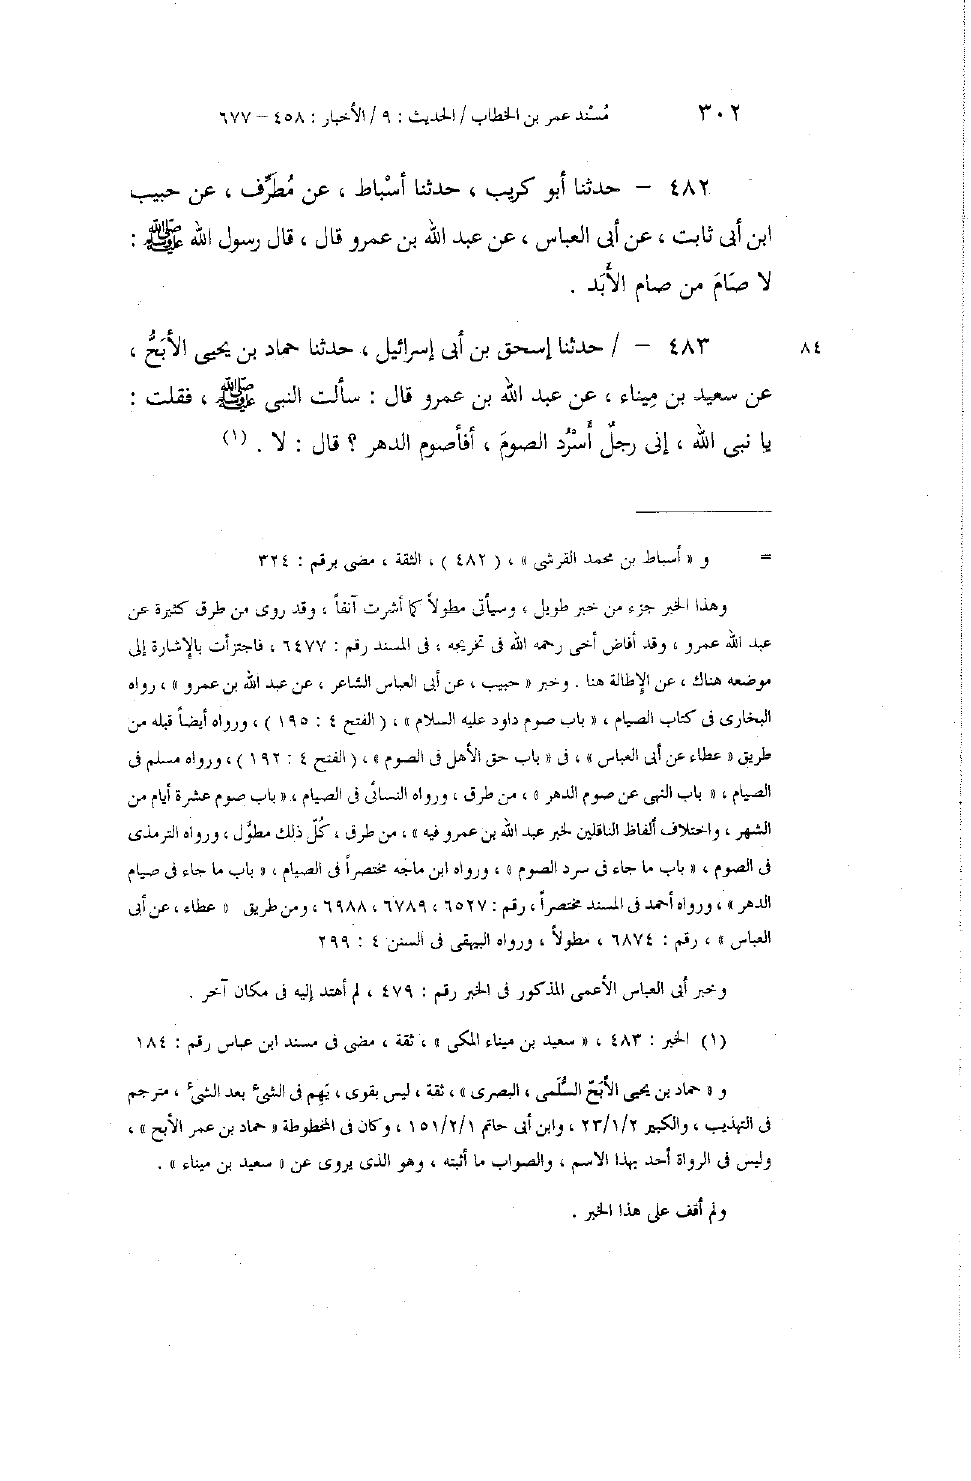 ٣٠٢ مُسْند عمر بن الخطاب / الحديث : ٩ / الأخبار : ٤٥٨ – ٦٧٧
٤٨٢ – حدثنا أبو كريب ، حدثنا أسْباط ، عن مُطَرِّف ، عن حبيب
ابن أبى ثابت ، عن أبى العباس ، عن عبد الله بن عمرو قال ، قال رسول الله ﷺ :
لا صَامَ من صام الأَبَد .
٨٤ ٤٨٣ – / حدثنا إسحق بن أبى إسرائيل ، حدثنا حماد بن يحيى الأبَحُّ ،
عن سعيد بن مِيناء ، عن عبد الله بن عمرو قال : سألت النبى ﷺ ، فقلت :
يا نبى الله ، إنى رجلٌ أَسْرُد الصومَ ، أفأصوم الدهر ؟ قال : لا . (١)
= و « أسباط بن محمد القرشى » ، ( ٤٨٢ ) ، الثقة ، مضى برقم : ٣٢٤
وهذا الخبر جزء من خبر طويل ، وسيأتى مطولاً كما أشرت آنفاً ، وقد روى من طرق كثيرة عن
عبد الله عمرو ، وقد أفاض أخى رحمه الله فى تخريجه ، فى المسند رقم : ٦٤٧٧ ، فاجتزأت بالإشارة إلى
موضعه هناك ، عن الإطالة هنا . وخبر « حبيب ، عن أبى العباس الشاعر ، عن عبد الله بن عمرو » ، رواه
البخارى فى كتاب الصيام ، « باب صوم داود عليه السلام » ، ( الفتح ٤ : ١٩٥ ) ، ورواه أيضاً قبله من
طريق « عطاء عن أبى العباس » ، فى « باب حق الأهل فى الصوم » ، ( الفتح ٤ : ١٩٢ ) ، ورواه مسلم فى
الصيام ، « باب النهى عن صوم الدهر » ، من طرق ، ورواه النسائى فى الصيام ، « باب صوم عشرة أيام من
الشهر ، واختلاف ألفاظ الناقلين لخبر عبد الله بن عمرو فيه » ، من طرق ، كُلّ ذلك مطوَّل ، ورواه الترمذى
فى الصوم ، « باب ما جاء فى سرد الصوم » ، ورواه ابن ماجه مختصراً فى الصيام ، « باب ما جاء فى صيام
الدهر » ، ورواه أحمد فى المسند مختصراً ، رقم : ٦٥٢٧ ، ٦٧٨٩ ، ٦٩٨٨ ، ومن طريق « عطاء ، عن أبى
العباس » ، رقم : ٦٨٧٤ ، مطولاً ، ورواه البيهقى فى السنن ٤ : ٢٩٩
وخبر أبى العباس الأعمى المذكور فى الخبر رقم : ٤٧٩ ، لم أهتد إليه فى مكان آخر .
(١) الخبر : ٤٨٣ ، « سعيد بن ميناء المكى » ، ثقة ، مضى فى مسند ابن عباس رقم : ١٨٤
و « حماد بن يحيى الأَبَحّ السُّلَمى ، البصرى » ، ثقة ، ليس بقوى ، يَهِم فى الشئ بعد الشئ ، مترجم
فى التهذيب ، والكبير ٢٣/١/٢ ، وابن أبى حاتم ١٥١/٢/١ ، وكان فى المخطوطة « حماد بن عمر الأبح » ،
وليس فى الرواة أحد بهذا الاسم ، والصواب ما أثبته ، وهو الذى يروى عن « سعيد بن ميناء » .
ولم أقف على هذا الخبر .